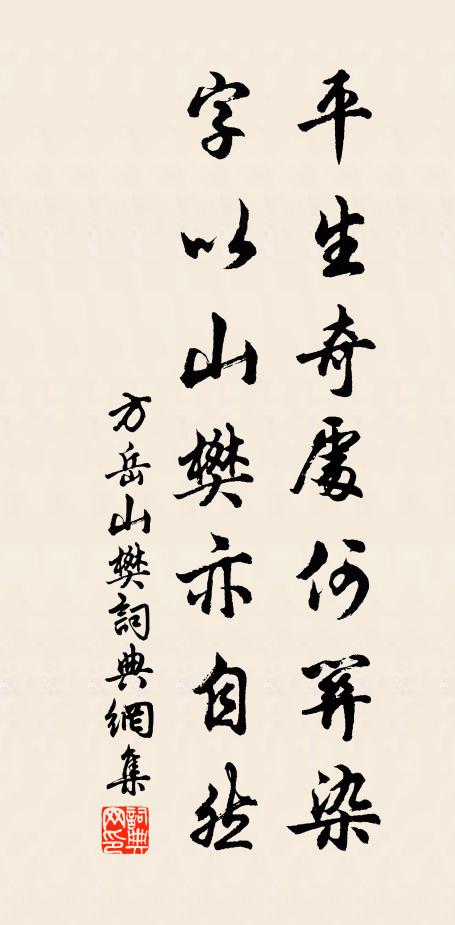 平生奇處何關染
字以山樊亦自然
方岳山樊詞典網集
詞典網印